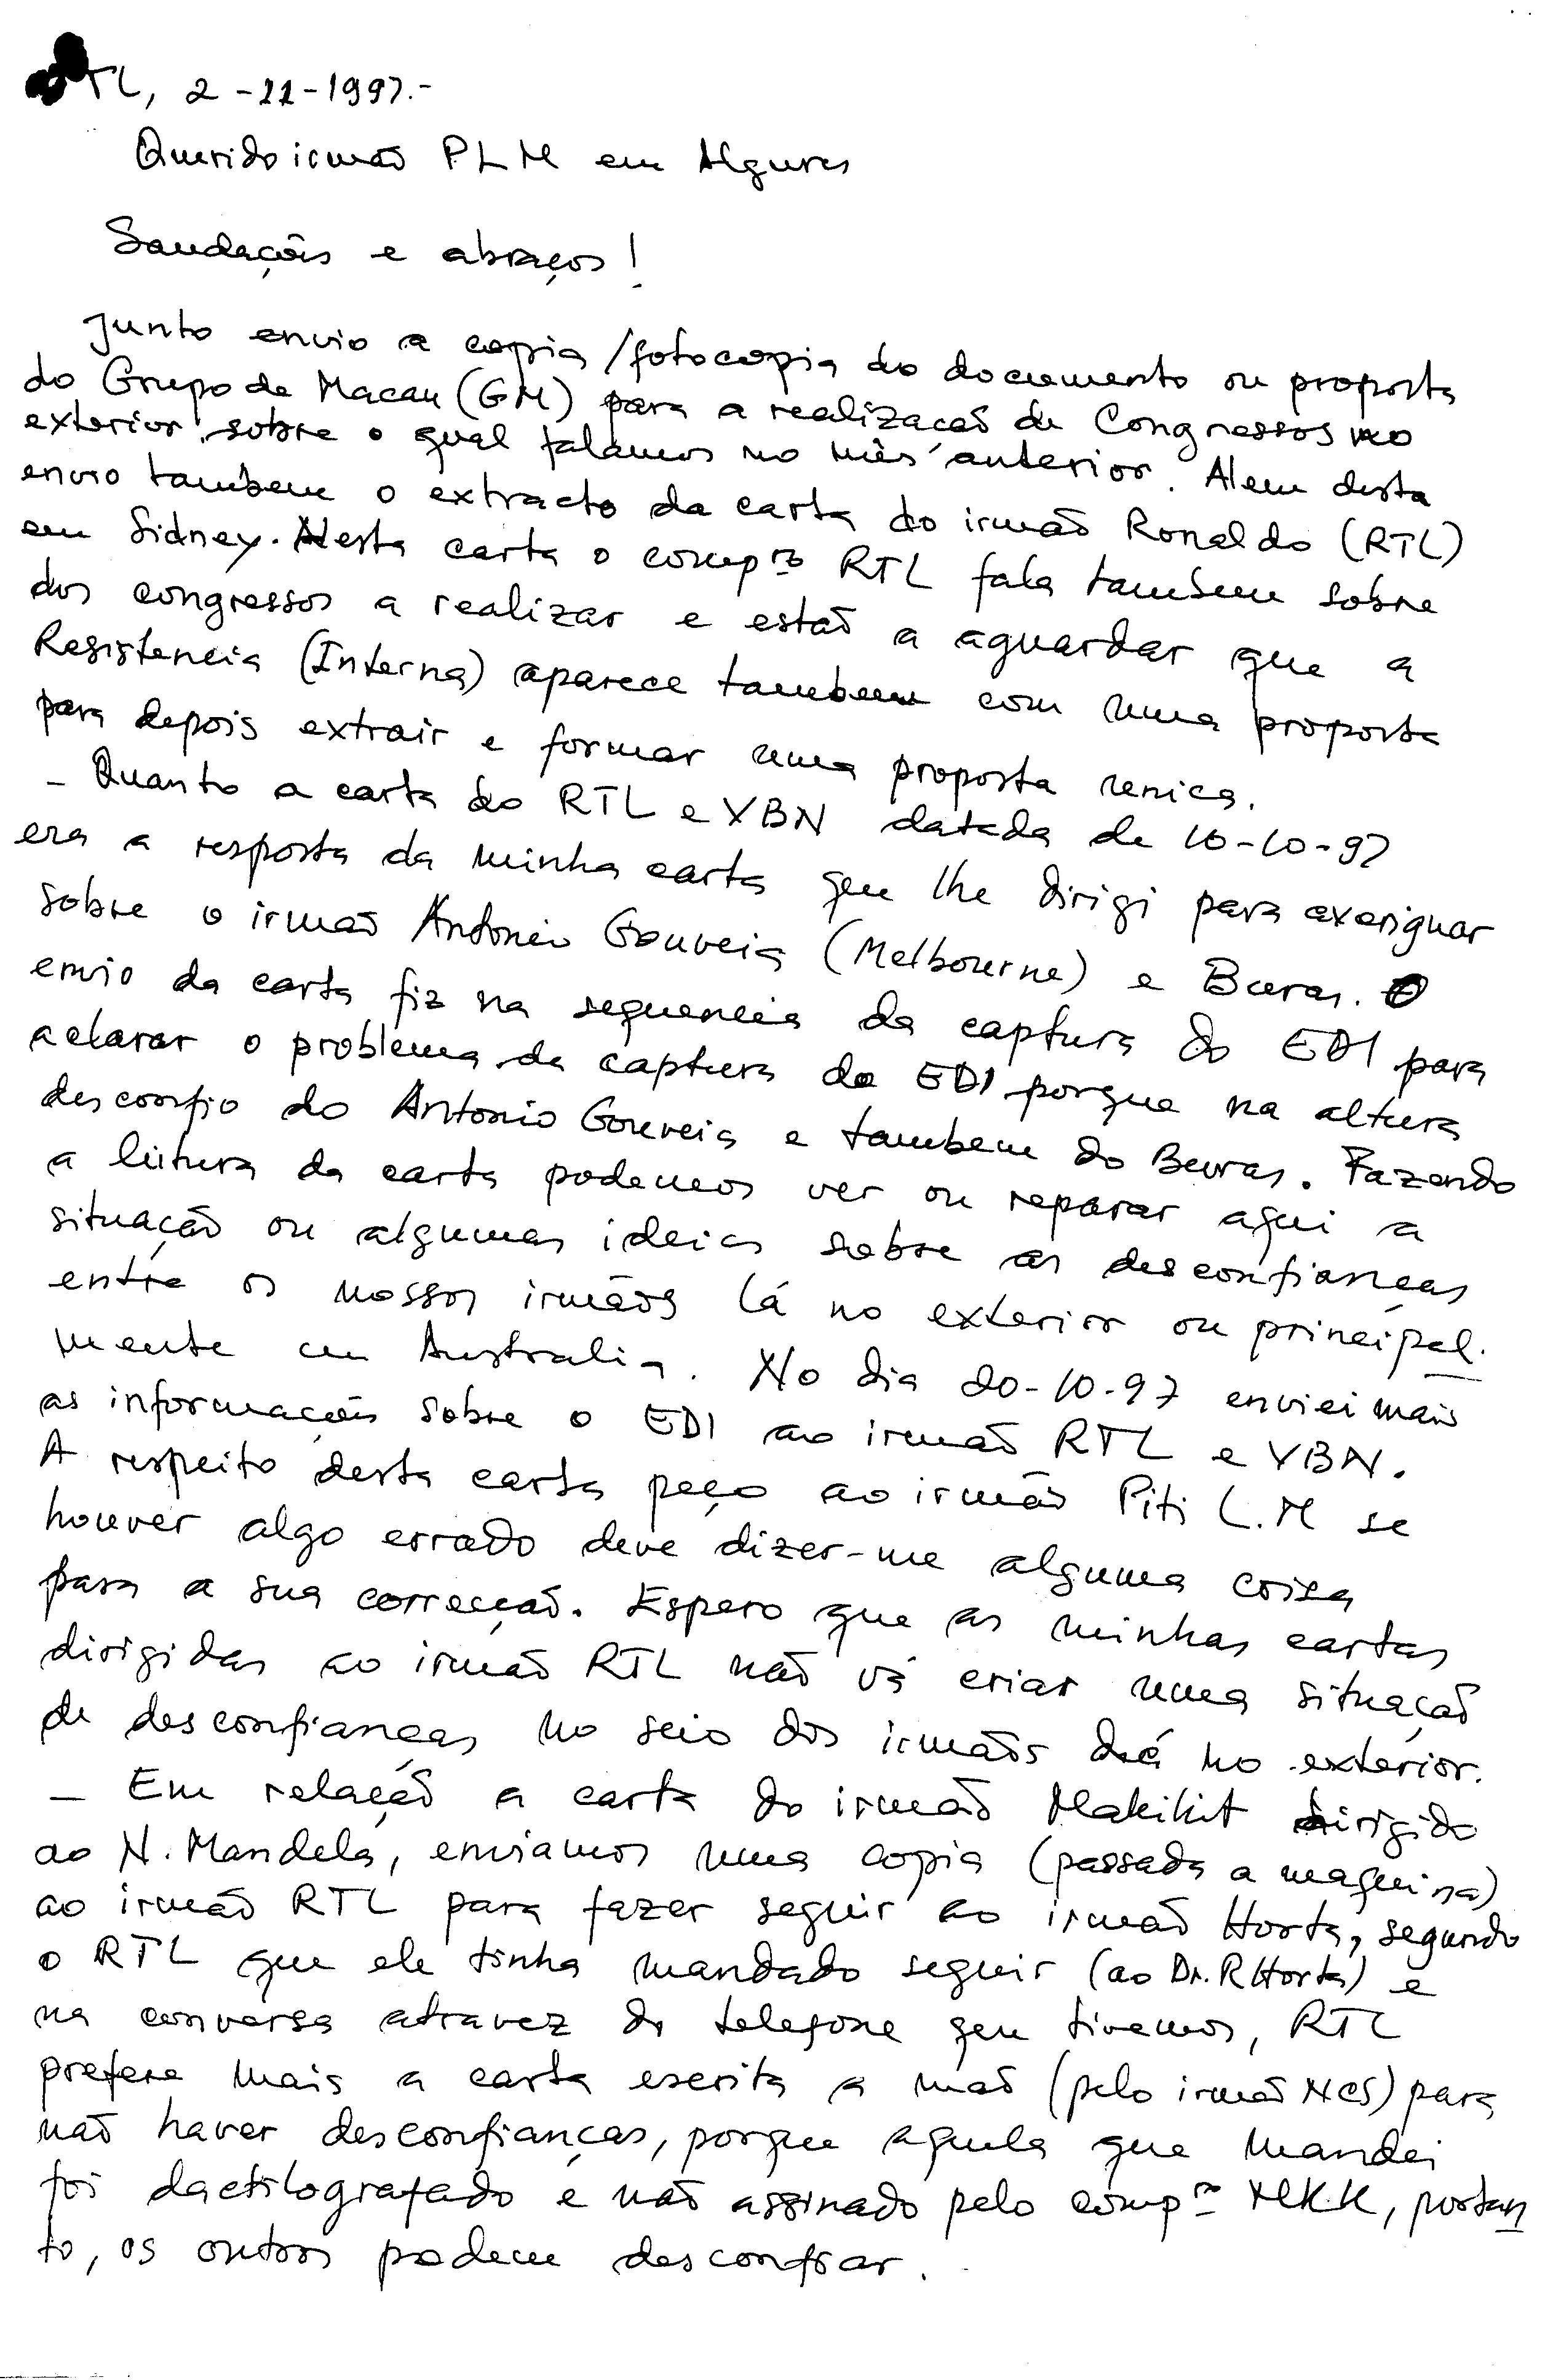 TL, 2-11-1997.-
Querido irmão PLM em Algures
Saudações e abraços!
Junto envio a copia/fotocopia do documento ou proposta
do Grupo de Macau (GM) para a realização de Congressos no
exterior sobre o qual falamos no mês anterior. Alem desta
envio tambem o extracto da carta do irmão Ronaldo (RTL)
em Sidney. Nesta carta o compº RTL fala tambem sobre
dos congressos a realizar e estão a aguardar que a
Resistencia (Interna) aparece tambem com uma proposta
para depois extrair e formar uma proposta unica.
- Quanto a carta do RTL e XBN datada de 10-10-97
era a resposta da minha carta que lhe dirigi para averiguar
sobre o irmão Antonio Gouveia (Melbourne) e Buras. O
envio da carta fiz na sequencia da captura do EDI para
aclarar o problema da captura do EDI porque na altura
desconfio do Antonio Gouveia e tambem do Buras. Fazendo
a leitura da carta podemos ver ou reparar aqui a
situação ou algumas ideias sobre as desconfianças
entre os nossos irmãos lá no exterior ou principal-
mente em Australia. No dia 20-10-97 enviei mais
as informações sobre o EDI ao irmão RTL e XBN.
A respeito desta carta peço ao irmão Piti L.M se
houver algo errado deve dizer-me alguma coisa
para a sua correcção. Espero que as minhas cartas
dirigidas ao irmão RTL não vá criar uma situação
de desconfianças no seio dos irmãos lá no exterior.
- Em relação a carta do irmão Makikit dirigido
ao N. Mandela, enviamos uma copia (passada a maquina)
ao irmão RTL para fazer seguir ao irmão Horta, segundo
o RTL que ele tinha mandado seguir (ao Dr. R Horta) e
na conversa atravez do telefone que tivemos, RTL
prefere mais a carta escrita a mão (pelo irmão NCS) para
não haver desconfianças, porque aquela que mandei
foi dactilografado e não assinado pelo compº MKK, portan
to, os outros podem desconfiar.